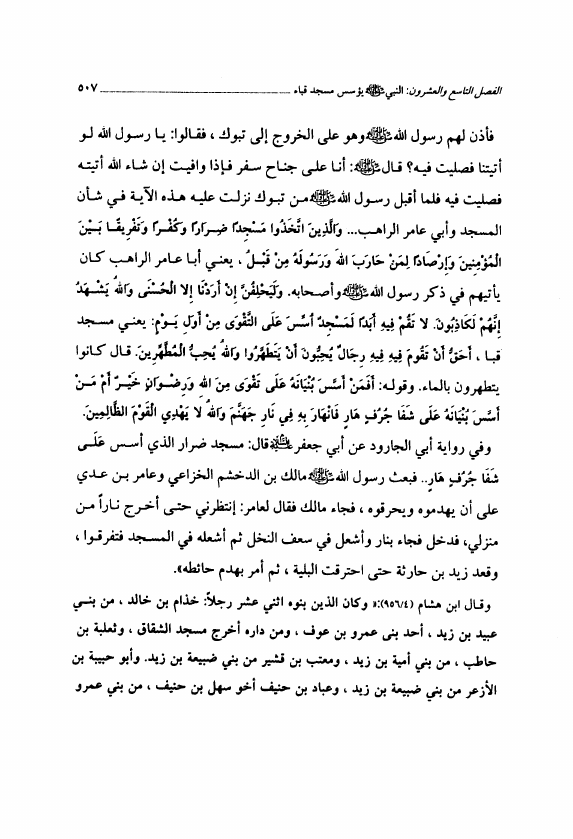 الفصل التاسع والعشرون: النبي ﷺ يؤسس مسجد قباء ٥٠٧
فأذن لهم رسول الله ﷺ وهو على الخروج إلى تبوك ، فقالوا: يا رسول الله لو
أتيتنا فصليت فيه؟ قال ﷺ: أنا على جناح سفر فإذا وافيت إن شاء الله أتيته
فصليت فيه فلما أقبل رسول الله ﷺ من تبوك نزلت عليه هذه الآية في شأن
المسجد وأبي عامر الراهب... وَالَّذِينَ اتَّخَذُوا مَسْجِدًا ضِرَارًا وَكُفْرًا وَتَفْرِيقًا بَيْنَ
الْمُؤْمِنِينَ وَإِرْصَادًا لِمَنْ حَارَبَ اللهَ وَرَسُولَهُ مِنْ قَبْلُ ، يعني أبا عامر الراهب كان
يأتيهم في ذكر رسول الله ﷺ وأصحابه. وَلَيَحْلِفُنَّ إِنْ أَرَدْنَا إِلا الْحُسْنَى وَاللهُ يَشْهَدُ
إِنَّهُمْ لَكَاذِبُونَ. لا تَقُمْ فِيهِ أَبَدًا لَمَسْجِدٌ أُسِّسَ عَلَى التَّقْوَى مِنْ أَوَّلِ يَوْمٍ: يعني مسجد
قبا ، أَحَقُّ أَنْ تَقُومَ فِيهِ فِيهِ رِجَالٌ يُحِبُّونَ أَنْ يَتَطَهَّرُوا وَاللهُ يُحِبُّ الْمُطَّهِّرِينَ. قال كانوا
يتطهرون بالماء. وقوله: أَفَمَنْ أَسَّسَ بُنْيَانَهُ عَلَى تَقْوَى مِنَ اللهِ وَرِضْوَانٍ خَيْرٌ أَمْ مَنْ
أَسَّسَ بُنْيَانَهُ عَلَى شَفَا جُرُفٍ هَارٍ فَانْهَارَ بِهِ فِي نَارِ جَهَنَّمَ وَاللهُ لا يَهْدِي الْقَوْمَ الظَّالِمِينَ.
وفي رواية أبي الجارود عن أبي جعفر قال: مسجد ضرار الذي أسس عَلَى
شَفَا جُرُفٍ هَارٍ.. فبعث رسول الله ﷺ مالك بن الدخشم الخزاعي وعامر بن عدي
على أن يهدموه ويحرقوه ، فجاء مالك فقال لعامر: إنتظرني حتى أخرج ناراً من
منزلي، فدخل فجاء بنار وأشعل في سعف النخل ثم أشعله في المسجد فتفرقوا ،
وقعد زيد بن حارثة حتى احترقت البلية ، ثم أمر بهدم حائطه».
وقال ابن هشام (٩٥٦/٤):« وكان الذين بنوه اثني عشر رجلاً: خذام بن خالد ، من بني
عبيد بن زيد ، أحد بنى عمرو بن عوف ، ومن داره أخرج مسجد الشقاق ، وثعلبة بن
حاطب ، من بني أمية بن زيد ، ومعتب بن قشير من بني ضبيعة بن زيد. وأبو حبيبة بن
الأزعر من بني ضبيعة بن زيد ، وعباد بن حنيف أخو سهل بن حنيف ، من بني عمرو